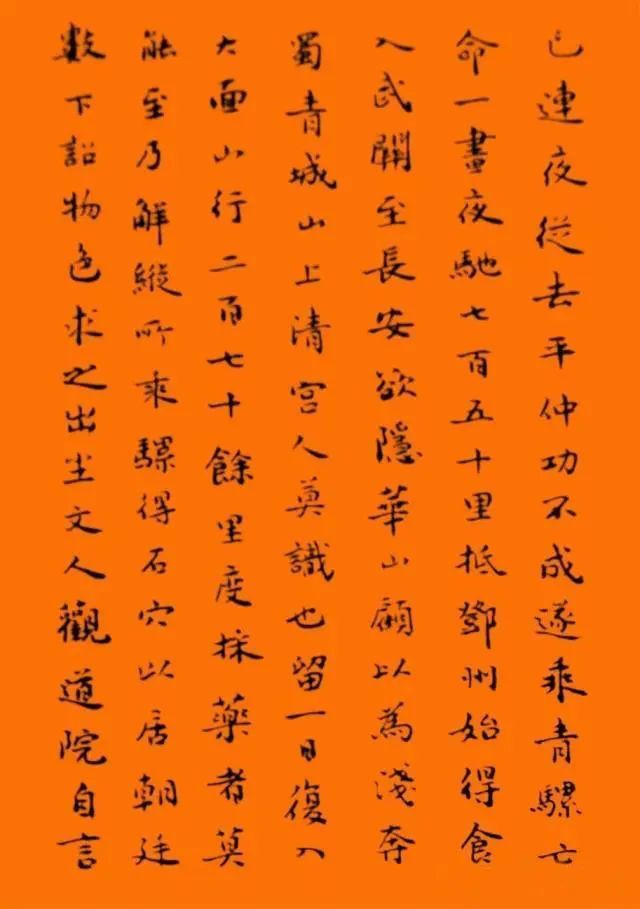 已連夜從去平仲功不成遂乘青騾亡
命一晝夜馳七百五十里抵鄧州始得食
入武關至長安欲隱華山顧以為淺奔
蜀青城山上清宮人莫識也留一日復入
大面山行二百七十餘里度採藥者莫
能至乃解縱所乘騾得石穴以居朝廷
數下詔物色求之出坐丈人觀道院自言